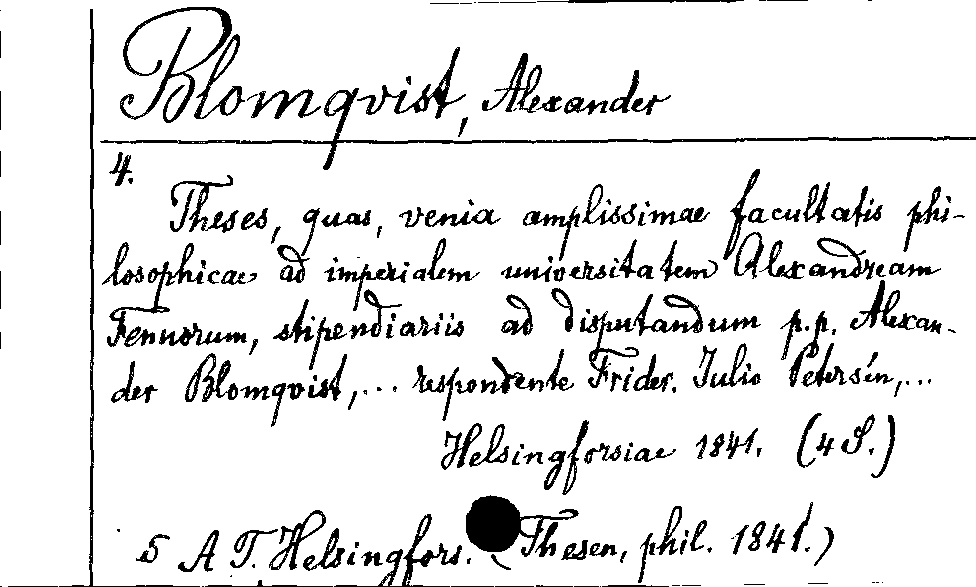 Blomqvist, Alexander
4.
Theses, quas, venia amplissimae facultatis phi-
losophicae ad imperialem universitatem Alexandream
Fennorum, stipendiariis ad disputandum p.p. Alexan-
der Blomqvist,... respondente Frider. Julio Petersén,...
Helsingforsiae 1841. (4 S.)
5 A T. Helsingfors. (Thesen, phil. 1841.)